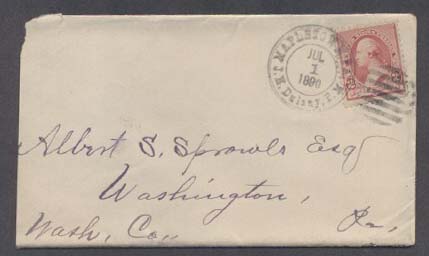 MAPLETOWN, PA.
JUL
1
1890
Albert S. Sprowls Esq
Washington,
Wash, Co., Pa,